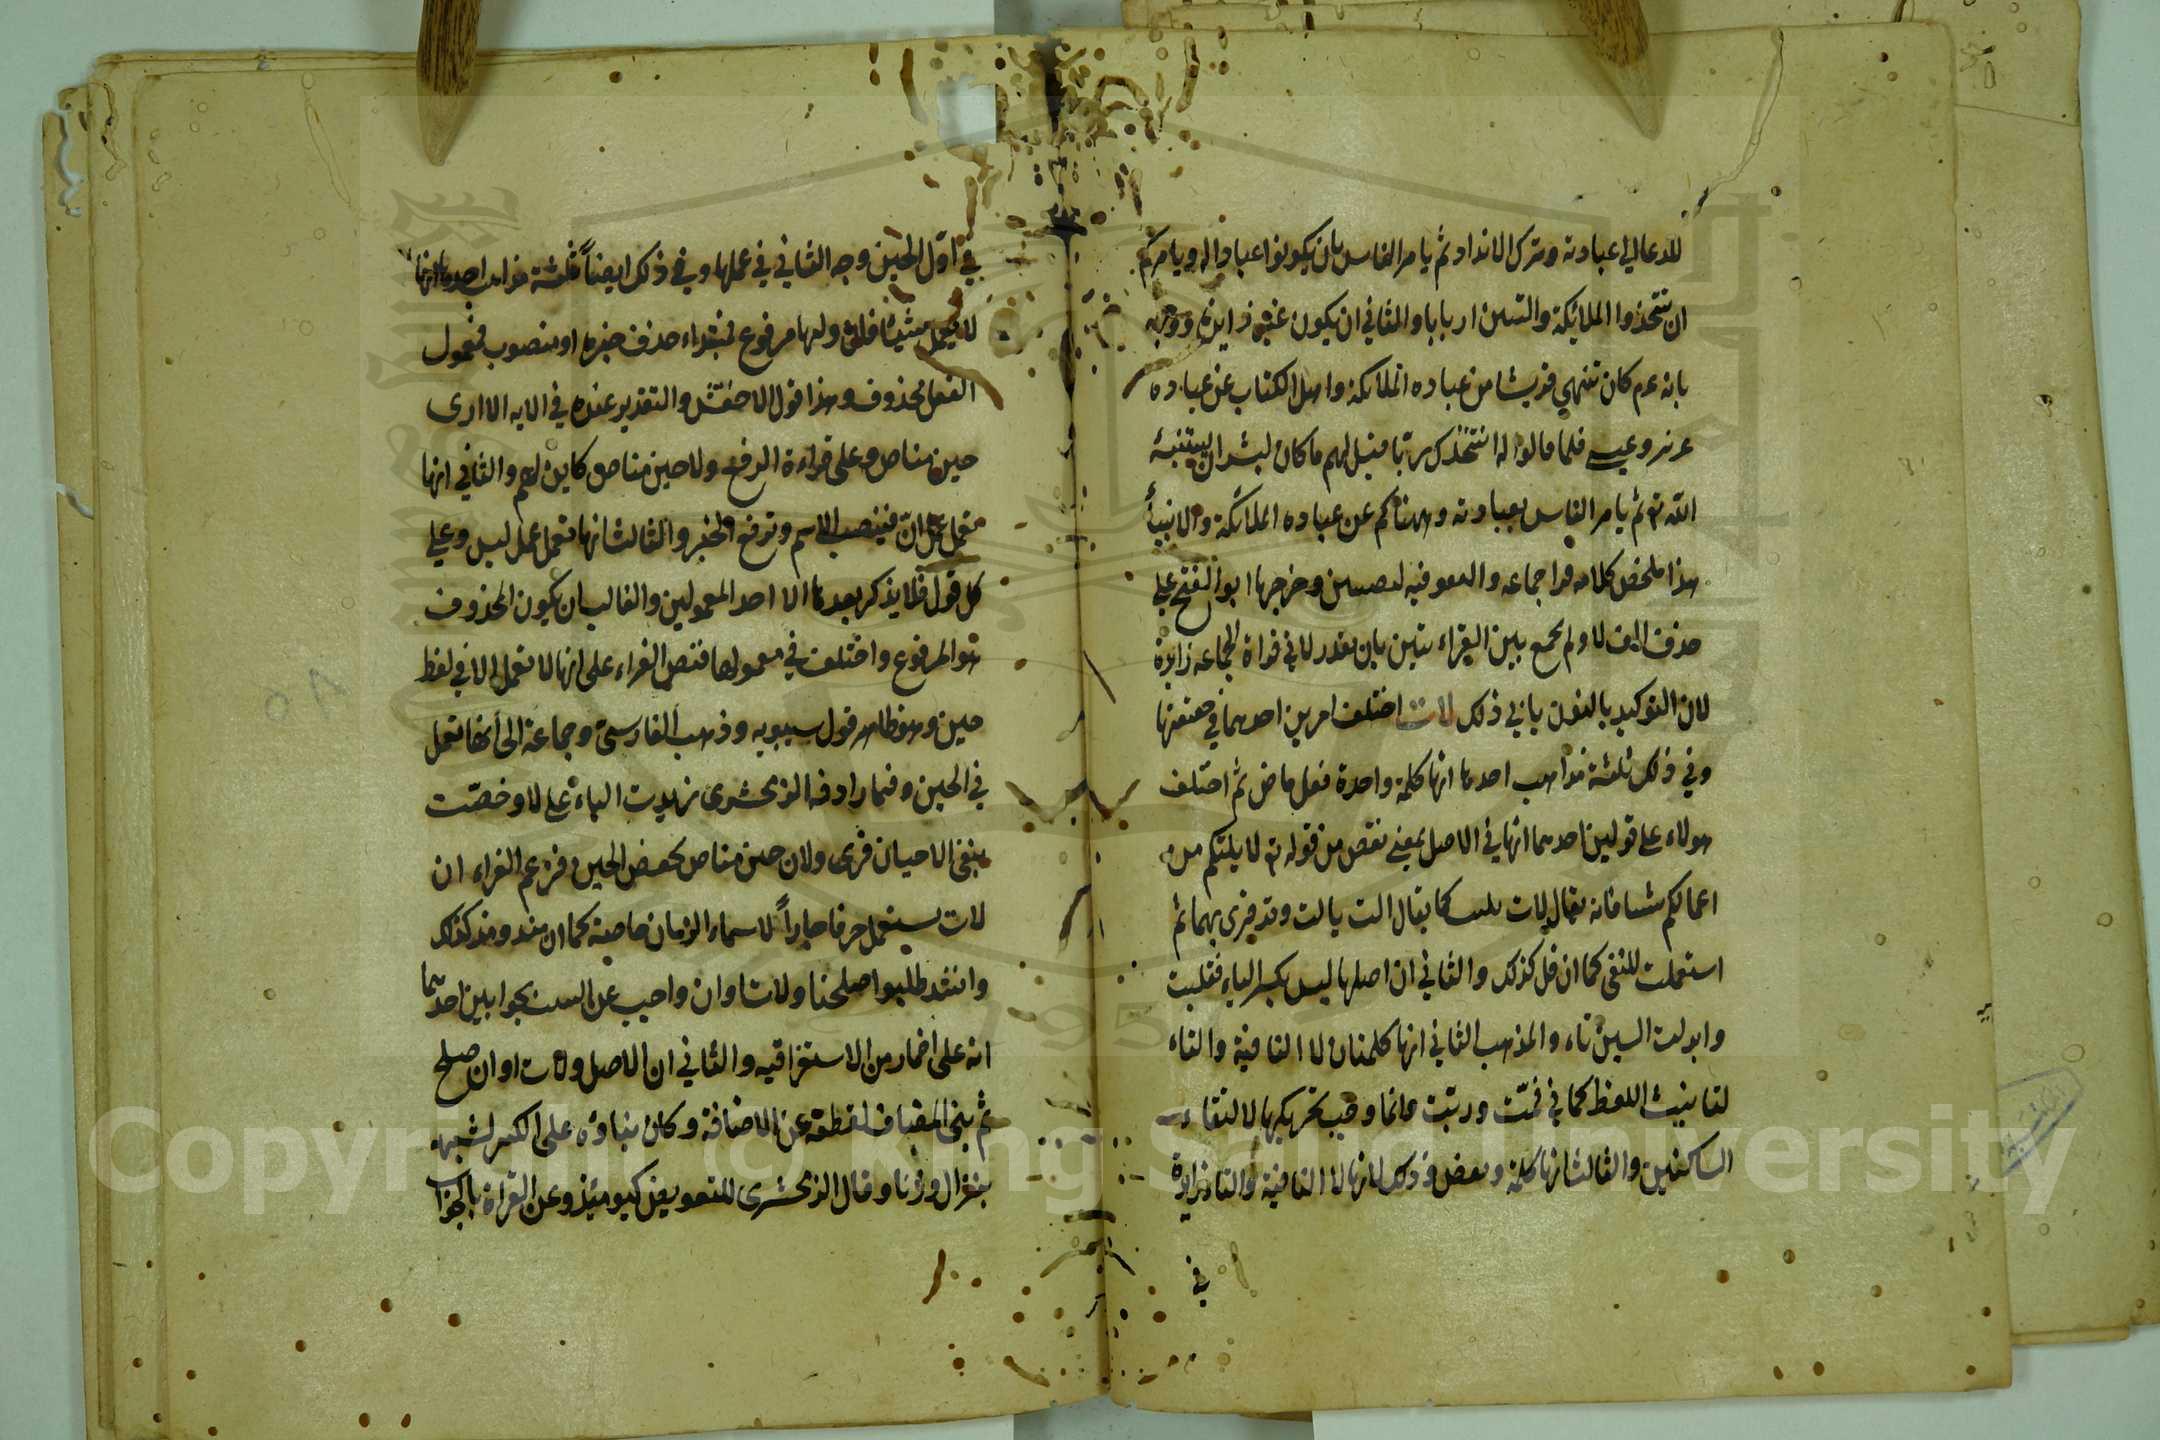 للدعا الي اعبادته وترك الانداد ثم يامر الناس بان يكونوا عبادا له ويامركم
ان تتخذوا الملائكة والنبيين اربابا والثاني ان يكون غير زايدة ووجهه
بانه عم كان تنهي قريشا من عباده الملائكة واهل الكتاب عن عباده
عزير وعيسي فلما قالوا له انتخذك ربا قيل لهم ما كان لبشر ان يستنبئه
الله تم ثم يامر الناس بعبادته وينهاكم عن عباده الملائكة والانبيأ
هذا ملخص كلامه قرا جماعه واتقوا فتنة لتصيبن وخرجها ابو الفتح علي
حذف الف لا ولم يجمع بين القراء تين بان يقدر لا في قراة الجماعه زايدة
لان التوكيد بالنون يابي ذلك لات اختلف امرين احدهما في حقيقتها
وفي ذلك ثلثة مذاهب احدها انها كلمة واحدة فعل ماض ثم اختلف
هولاء علي قولين احدهما انها في الاصل بمعني نقص من قوله تم لا يلتكم من
اعمالكم شيا فانه يقال لات يليت كما يقال الت يالت وقد قرى بهما ثم
استعملت للنفي كما ان قل كذلك والثاني ان اصلها ليس بكسر الياء فقلبت
وابدلت السين تاء والمذهب الثاني انها كلمتان لا النافية والتاء
لتانيث اللفظ كما في ثمّت وربّت وانما وجب تحريكها لالتقاء
الساكنين والثالث انها كلمة وبعض وذلك انها لا النافية والتا زايدة
في
في اوّل الحين وجه الثاني في عملها وفي ذلك ايضاً ثلثة مذاهب احدها انها
لا تعمل شيئا فان ولها مرفوع فمبتداء حذف خبره او منصوب فمعمول
الفعل محذوف وهذا قول الاخفش والتقدير عنده في الايه لا ارى
حين مناص وعلى قراءة الرفع ولا حين مناص كاين لهم والثاني انها
تعمل عمل انّ فينصب الاسم وترفع الخبر والثالث انها تعمل عمل ليس وعلي
كل قول فلا يذكر بعدها الا احد المعمولين والغالب ان يكون المحذوف
هو المرفوع واختلف في معمولها فنص الفراء على انها لا تعمل الا في لفظ
حين وهو ظاهر قول سيبويه وذهب الفارسي وجماعة الى انها تعمل
في الحين وفيما رادفه الزمخشرى زيدت التاء علي لا وخصّت
بنفي الاحيان قرى ولات حين مناص بخفض الحين فزعم الفراء ان
لات يستعمل حرفا جاراً لاسماء الزمان خاصة كما ان منذ ومذ كذلك
وانشد طلبوا صلحنا ولات اوان واجيب عن البيت بجوابين احدهما
انه على اضمار من الاستغراقيه والثاني ان الاصل ولات اوان صلح
ثم بني المضاف لقطعه عن الاضافة وكان بناؤه على الكسر لشبهه
بنزال وزنا وقال الزمخشرى للتعويض كيومئذ وعن القراة بالجواب